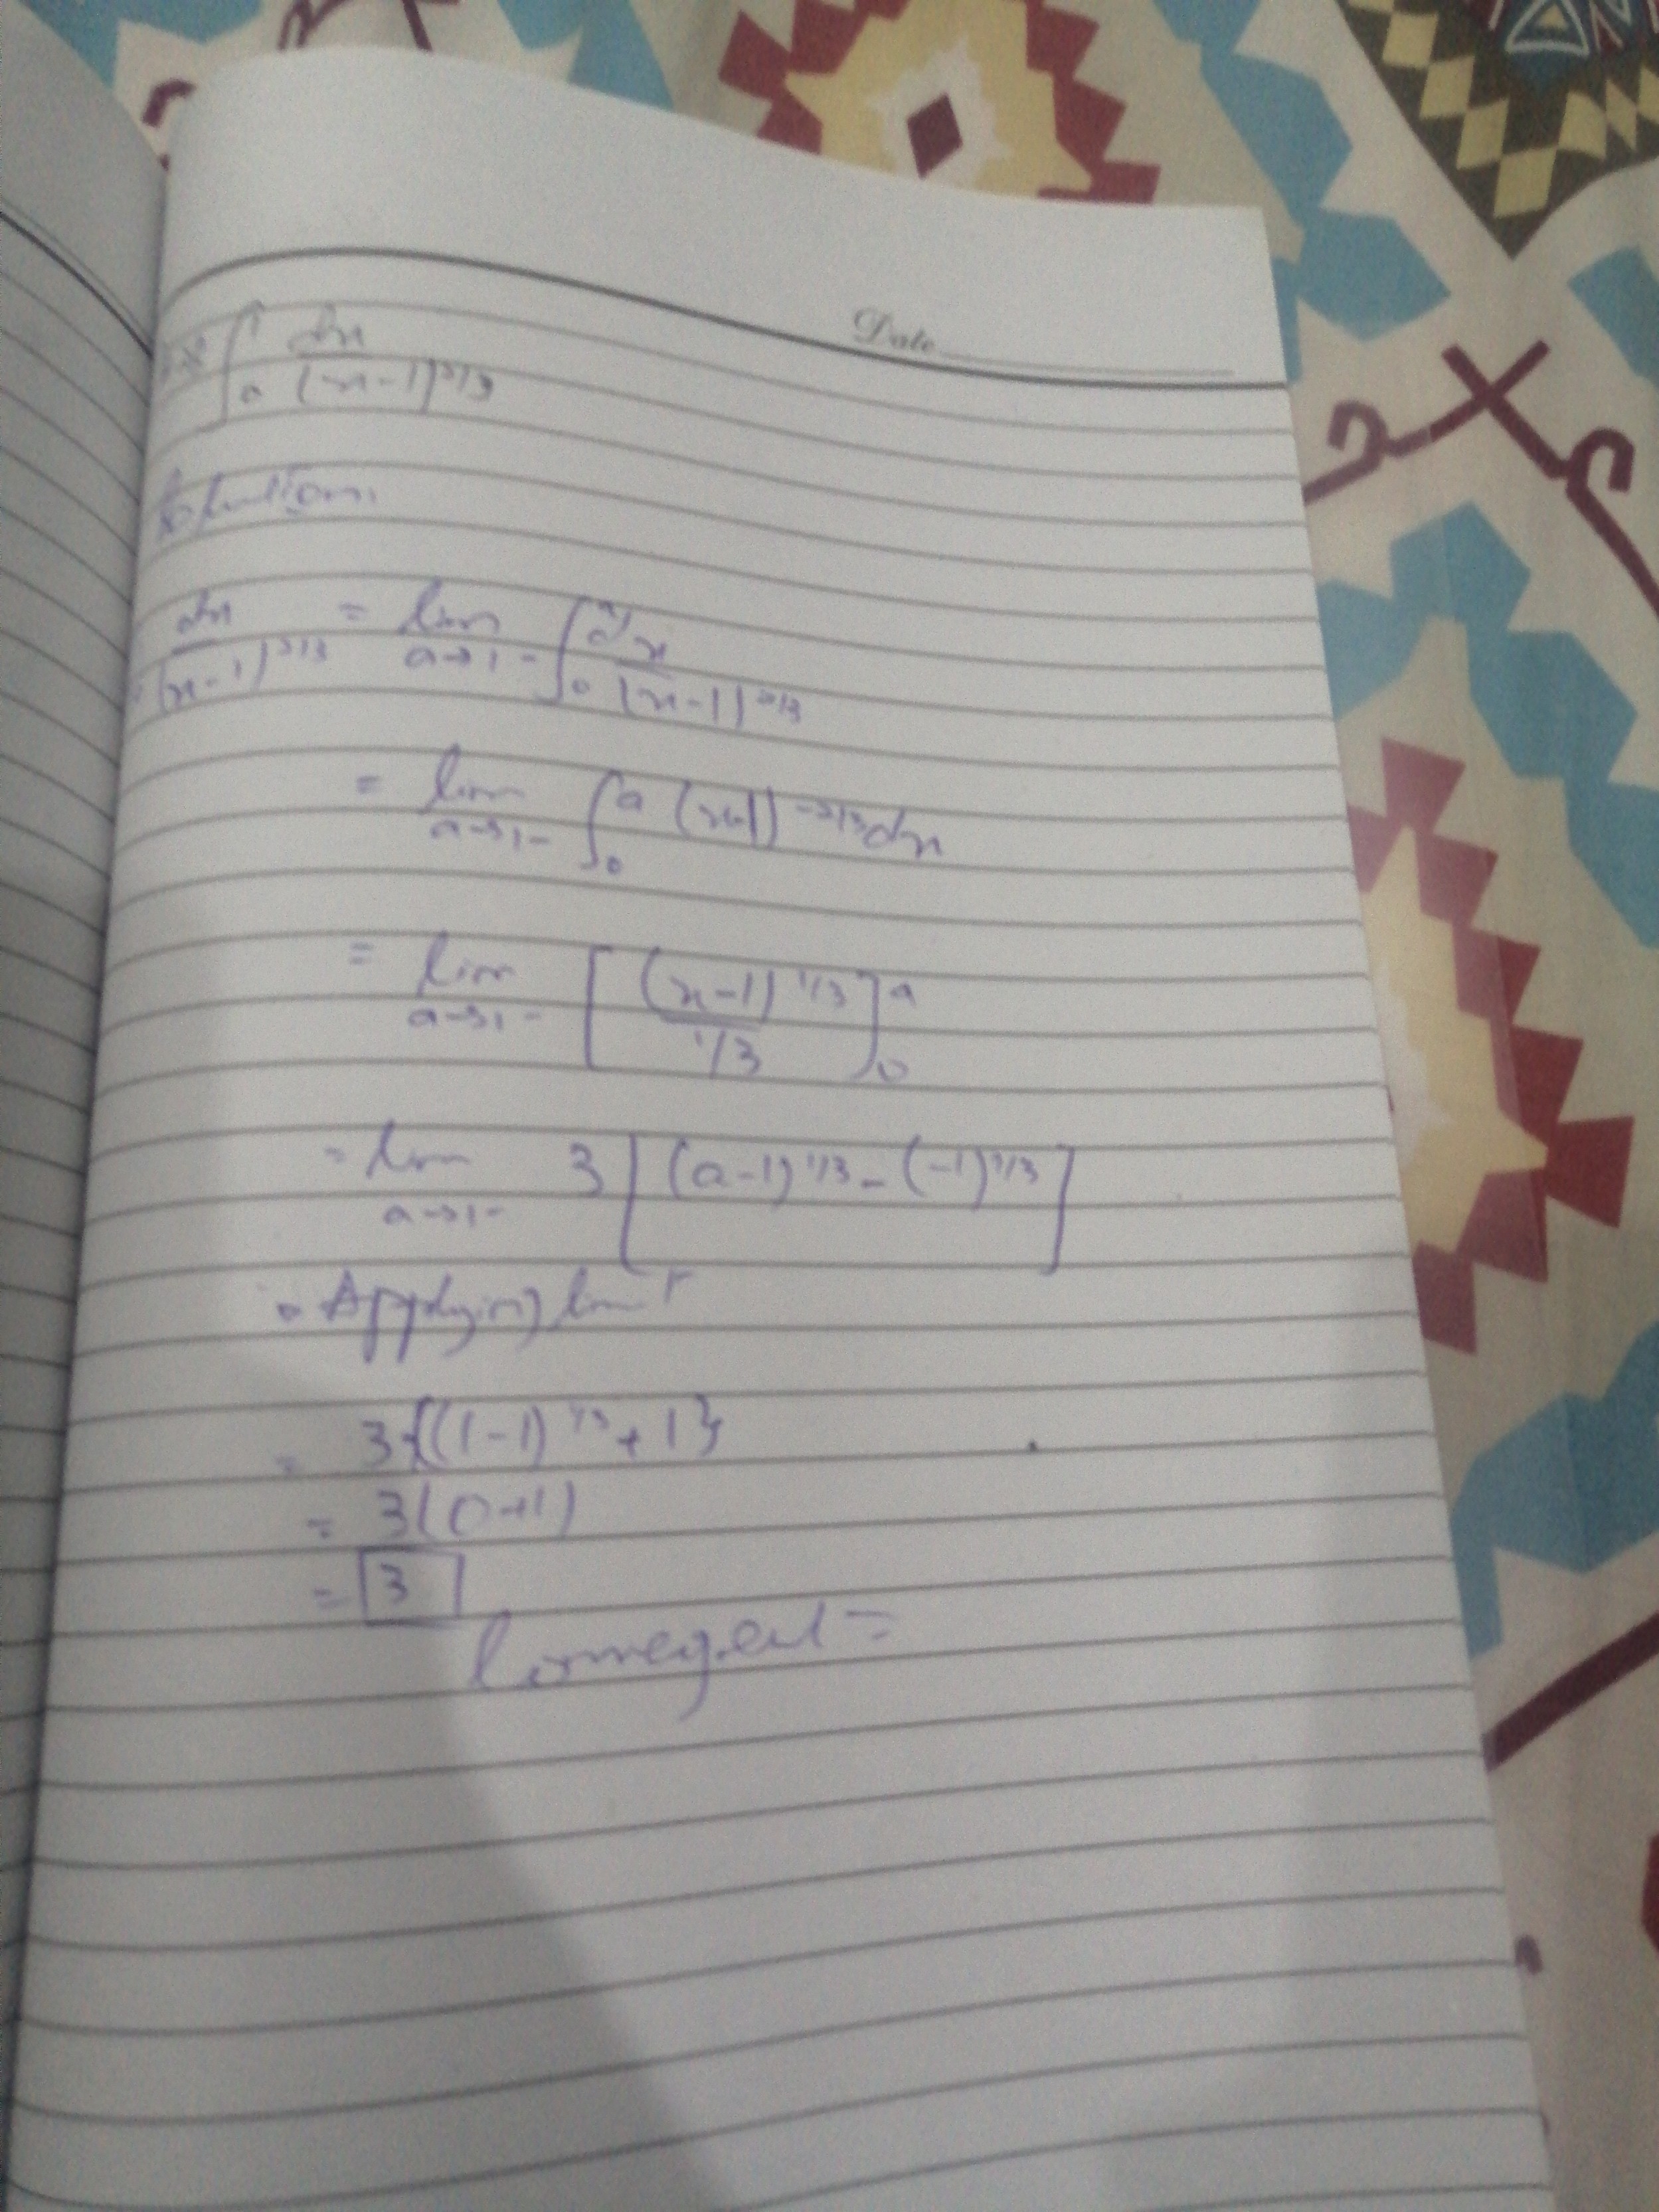 Date
∫₀¹ dx / (x-1)^2/3
Solution.
dx / (x-1)^2/3 = lim a→1- ∫₀ᵃ dx / (x-1)^2/3
= lim a→1- ∫₀ᵃ (x-1)^-2/3 dx
= lim a→1- [ (x-1)^1/3 / 1/3 ]₀ᵃ
= lim a→1- 3 [ (a-1)^1/3 - (-1)^1/3 ]
Applying limit
= 3{(1-1)^1/3 + 1}
= 3(0+1)
= 3